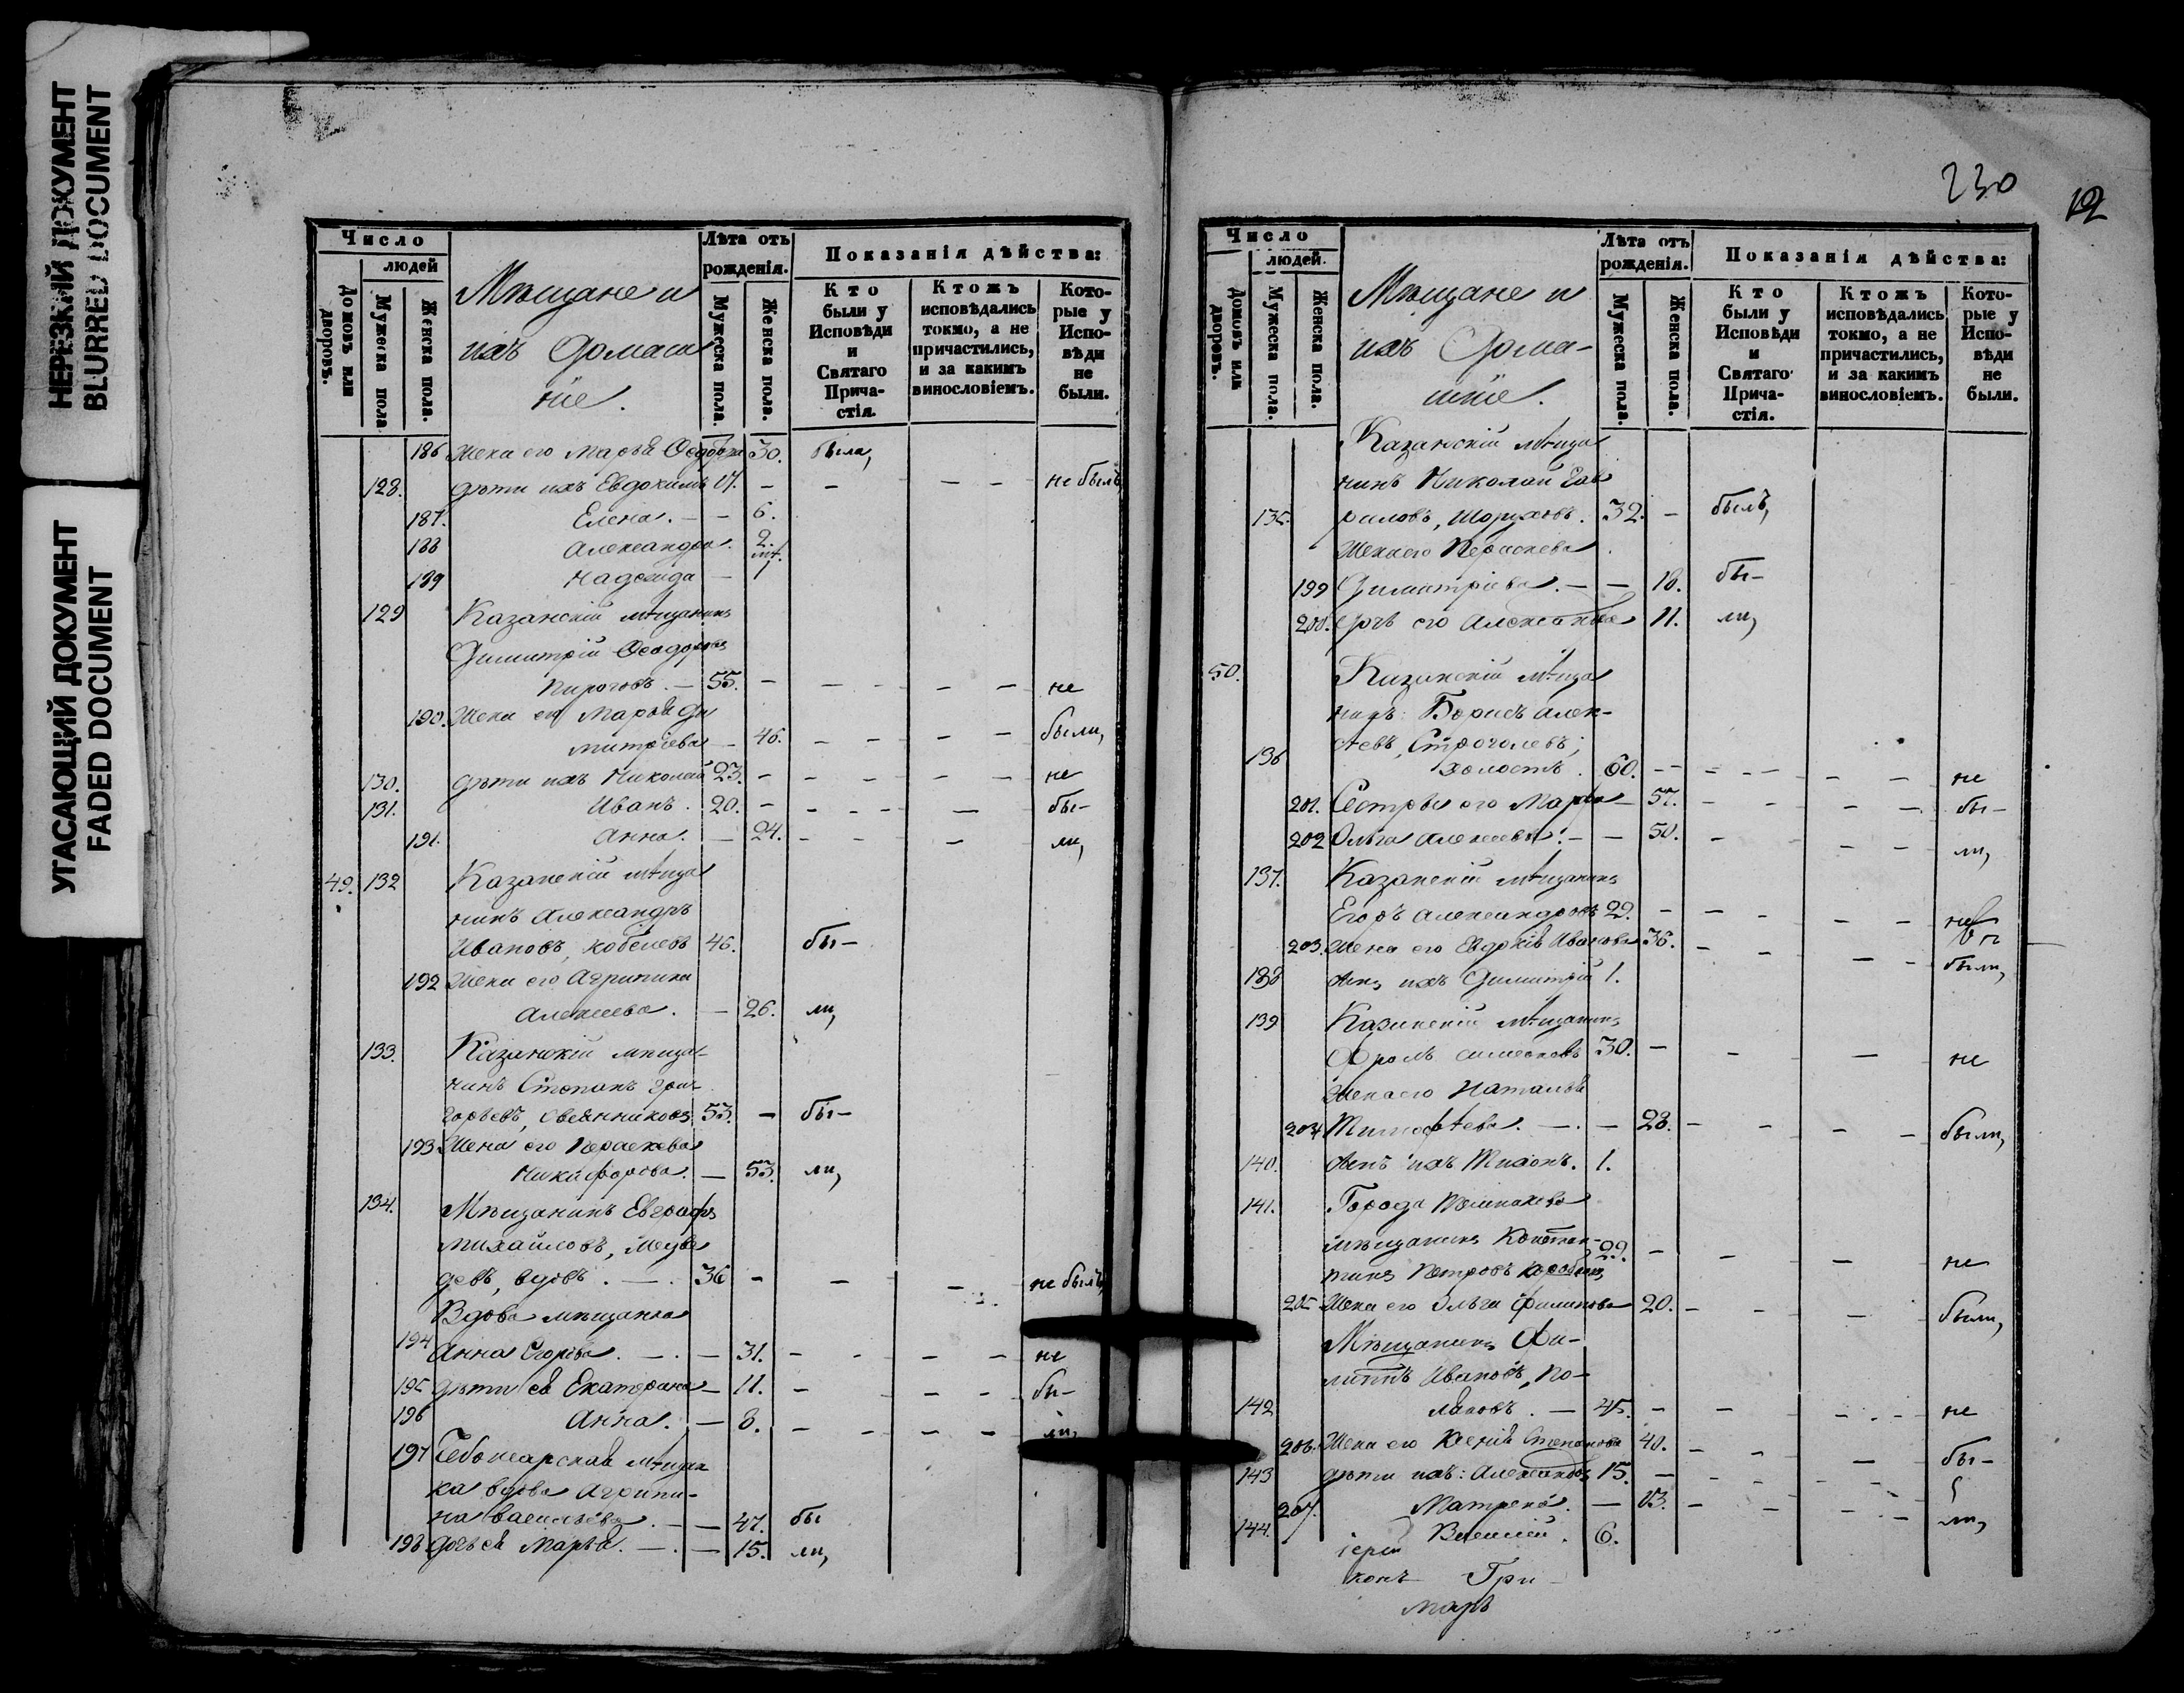 НЕРЕЗКИЙ ДОКУМЕНТ
BLURRED DOCUMENT
УГАСАЮЩИЙ ДОКУМЕНТ
FADED DOCUMENT
Число
людей
Домовъ или дворовъ.
Мужеска пола
Женска пола.
Мѣщане и
ихъ Домаш
ніе.
Лѣта отъ
рожденія.
Мужеска пола.
Женска пола.
Показанія дѣйства:
Кто
были у
Исповѣди
и
Святаго
Прича-
стія.
Ктожъ
исповѣдались
токмо, а не
причастились,
и за какимъ
винословіемъ.
Кото-
рые у
Испо-
вѣди
не
были.
186 Жена его Марья Ѳеодорова 30. была,
128. дѣти ихъ Евдокимъ 17. - - - - не былъ
187. Елена. - - 6.
188 Александра. 2.
189 Надежда - 1
129 Казанскій мѣщанинъ
Димитрій Ѳеодоровъ
Пироговъ. - 55. - - - - - не
190. Жена его Марья Ди
митріева - 46. - - - - были,
130. дѣти ихъ Николай 23. - - - - - не
131. Иванъ. 20. - - - - - бы-
191. Анна. - 24. - - - ли,
49. 132 Казанскій мѣща
нинъ Александръ
Ивановъ, Кобелевъ 46. бы-
192 Жена его Агрипина
Алексеева. - 26. ли,
133. Казанскій мѣща-
нинъ Степанъ Гри-
горьевъ, Овсянниковъ 53. - бы-
193 Жена его Параскева
Никифорова. - 53. ли,
134. Мѣщанинъ Евграфъ
Михайловъ, Медве
девъ, вдовъ. - . 36 - - - не былъ,
Вдова мѣщанка
194 Анна Егорова. - . - 31. - - - - не
195 дѣти ея Екатерина - 11. - - - бы-
196 Анна. - 8. - - - - ли,
197 Чебоксарская мѣщан
ка вдова Агрипи-
на Васильева. - - 47. бы
198 дочь ея Марья. - . - 15. ли,
230
12
Число
людей.
Домовъ или дворовъ.
Мужеска пола.
Женска пола.
Мѣщане и
ихъ Дома-
шніе.
Лѣта отъ
рожденія.
Мужеска пола.
Женска пола.
Показанія дѣйства:
Кто
были у
Исповѣди
и
Святаго
Прича-
стія.
Ктожъ
исповѣдались
токмо, а не
причастились,
и за какимъ
винословіемъ.
Кото-
рые у
Испо-
вѣди
не
были.
Казанскій мѣща
нинъ Николай Гав
135. риловъ, 32. - былъ,
Жена его Параскева
199 Димитріева. - - 18. бы-
200. дочь его 11. ли,
50. Казанскій мѣща
нинъ: Борисъ Алек-
136 сѣевъ, Строголевъ;
холостъ. 60. - - - - - - - не
201. Сестры его Марфа - 57. - - - бы-
202 Ольга Алексеевы. - - 50. - - - ли,
137. Казанскій мѣщанинъ
Егоръ Александровъ 29. - - - - - не
203. Жена его Евдокія Иванова 36. - - - - были,
138 сынъ ихъ Димитрій 1.
139 Казанскій мѣщанинъ
Фролъ Симеоновъ 30. - - - не
Жена его Наталья
204 Тимофѣева. - . - 28. - - - - были,
140. сынъ ихъ Тихонъ. 1.
141. Города
мѣщанинъ Констан-
тинъ Петровъ 29. - - - не
205 Жена его Ольга Филипова 20. - - - были,
Мѣщанинъ Фи-
липпъ Ивановъ, По-
142 ляковъ. - 45. - - - - - не
206. Жена его Ксенія Степанова 40. - - - бы-
143 дѣти ихъ: Александръ 15. - - - - -
207. Матрена. - 13. - - - - ли,
144. Василій. 6.
іерей
Гри-